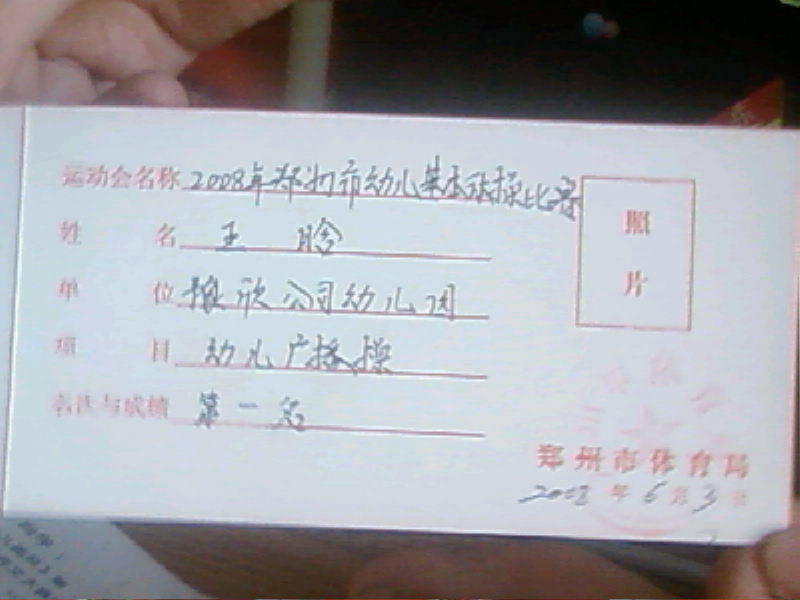 运动会名称 2008年郑州市幼儿基本体操比赛
姓 名 王 晗
单 位 欣公司幼儿园
项 目 幼儿广播操
名次与成绩 第一名
照
片
郑州市体育局
2008年6月3日